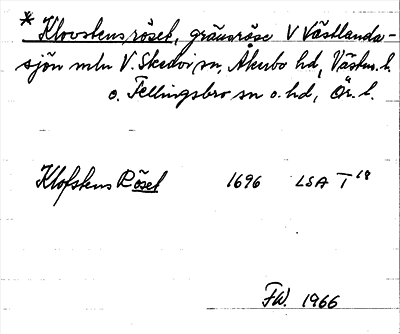 * Klovstensröset, gränsröse V Västlanda-
sjön mln V. Skedvi sn, Åkerbo hd, Västm. l.
o. Fellingsbro sn o. hd, Ör. l.
Klofstens Rösel 1696 LSA T 18
FW. 1966